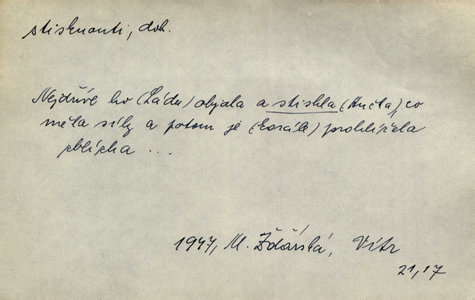 stisknouti, dok.
Nejdříve ho (Láďu) objala a stiskla (Anéta), co
měla síly a potom je (korále) prohlížela
zblízka ...
1947, M. Žďárská, Vítr
21, 17